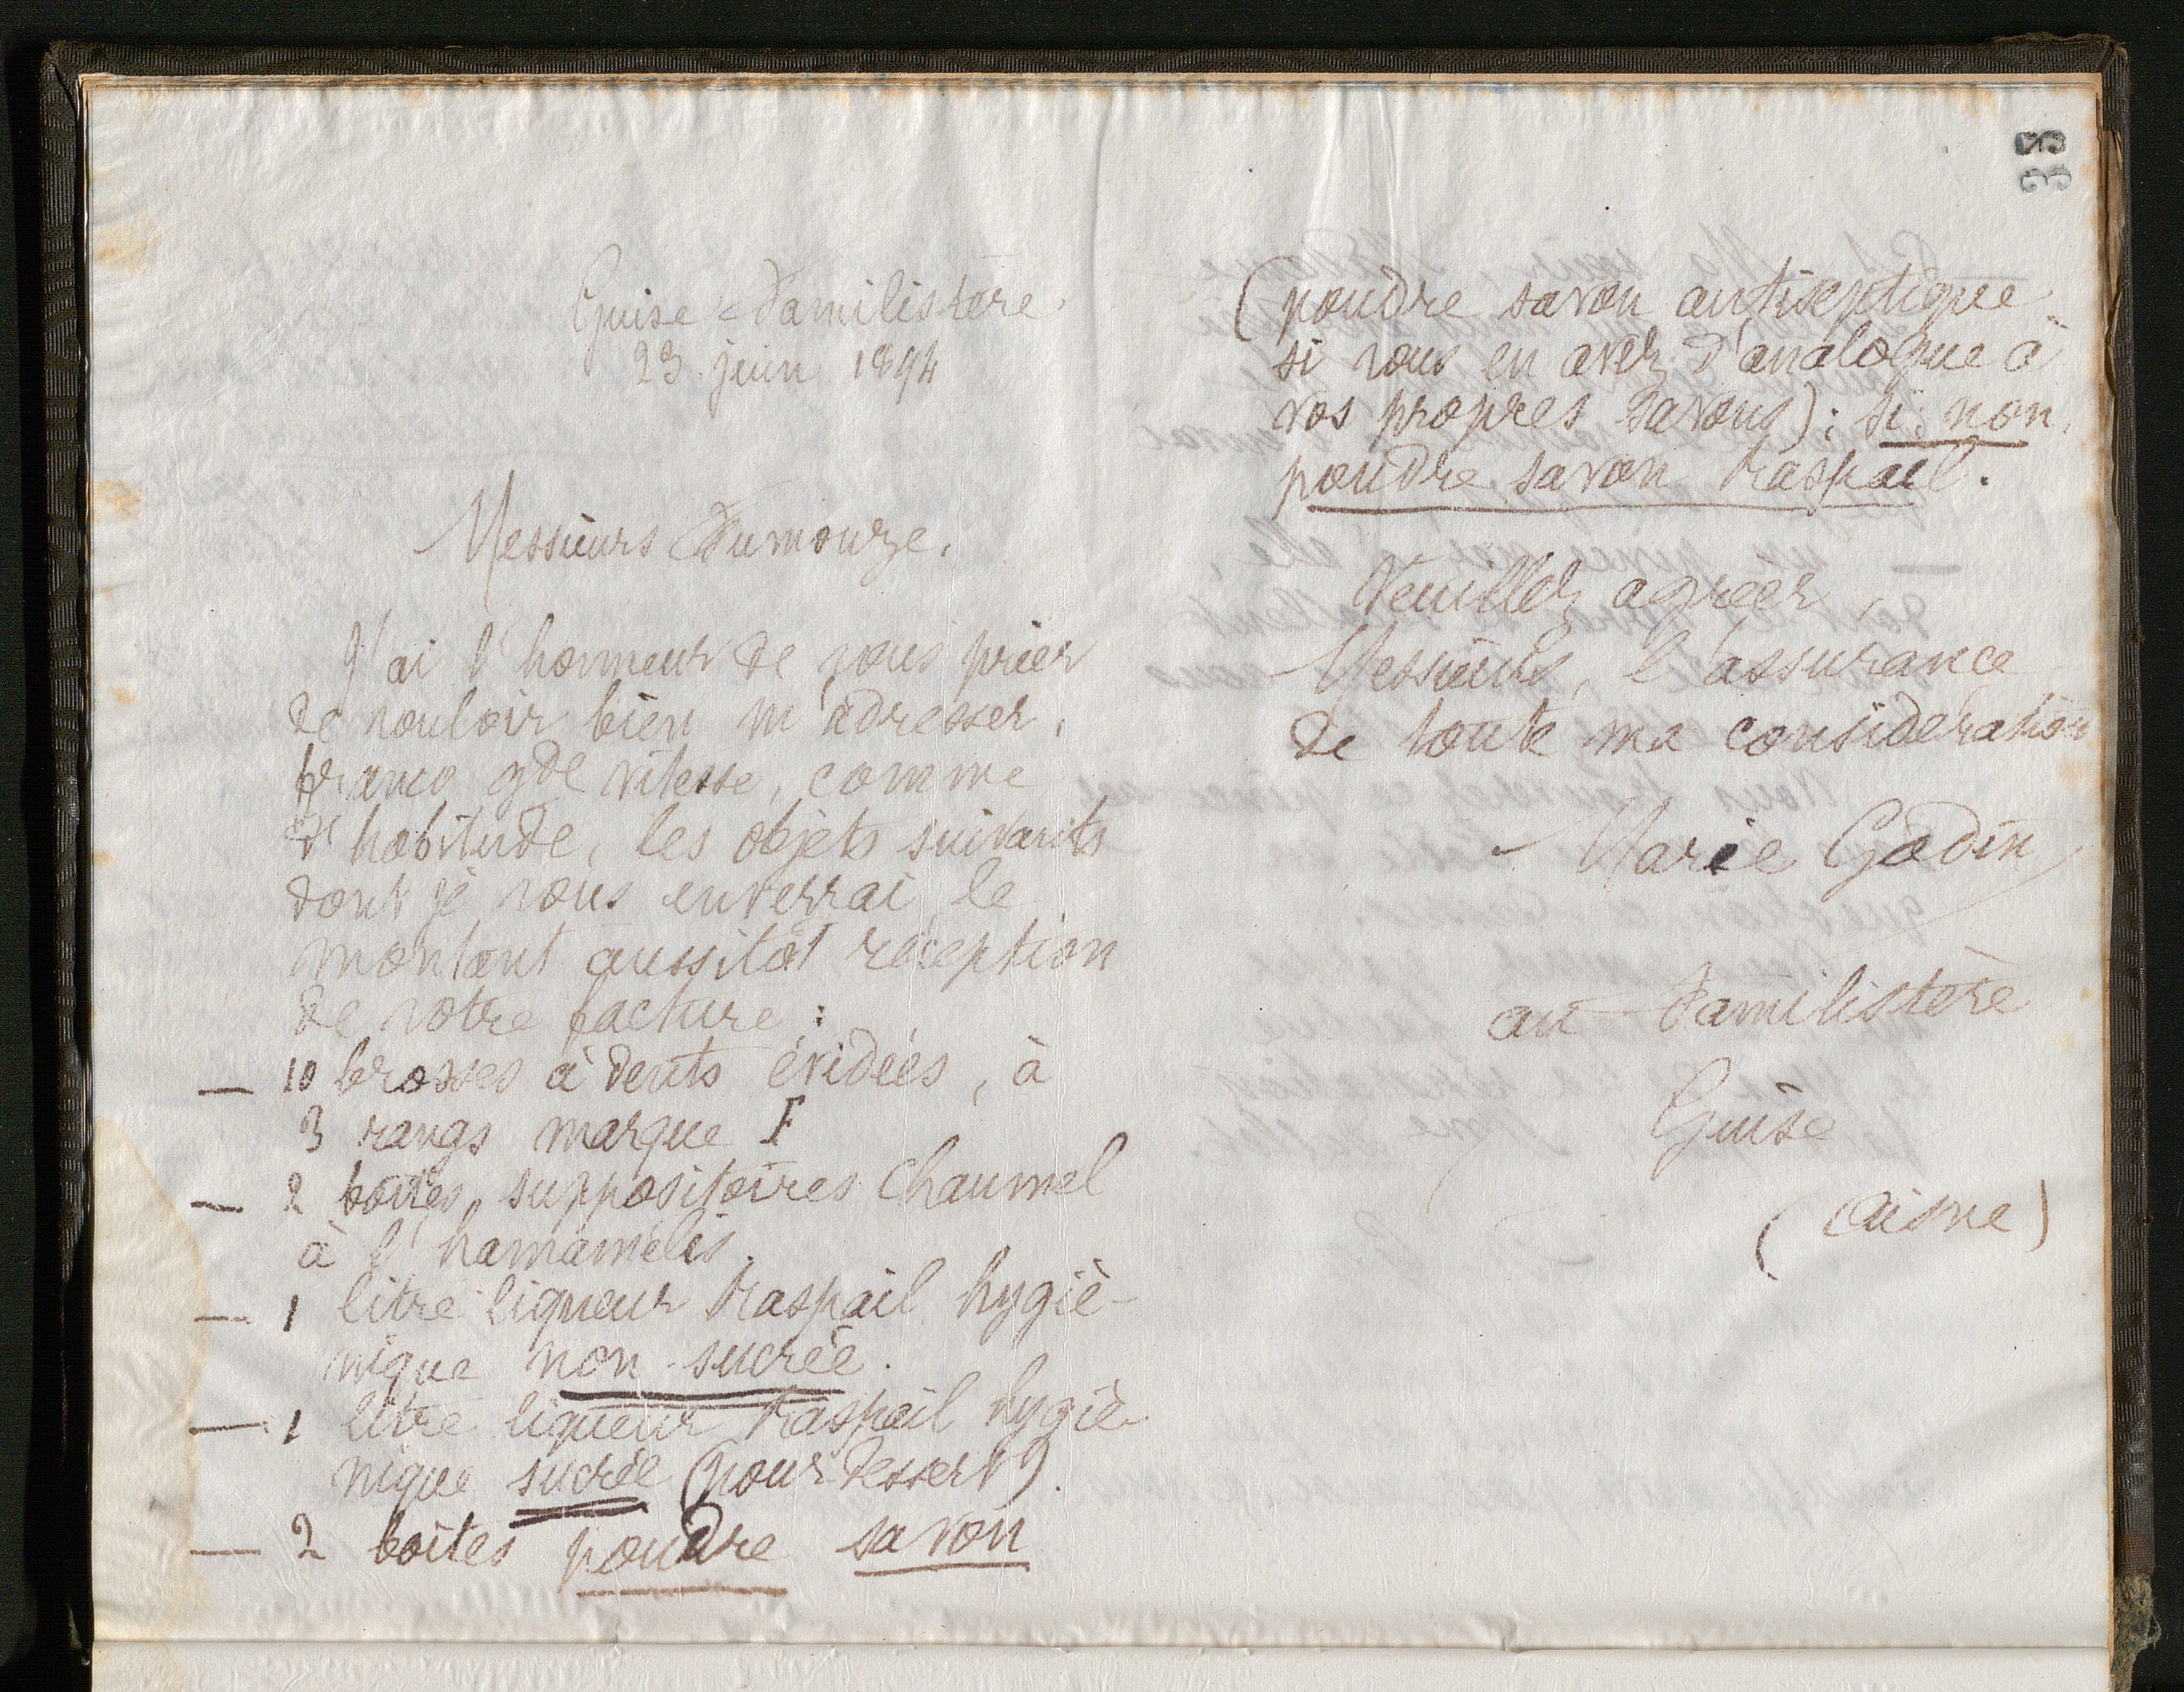 33
Guise Familistère
23 juin 1894
Messieurs Fumouze.
J'ai l'honneur de vous prier
de vouloir bien m'adresser,
franco gde vitesse, comme
d'habitude, les objets suivants
dont je vous enverrai le
montant aussitôt réception
de votre facture :
— 10 brosses à dents évidées, à
3 rangs marque F
— 2 boîtes suppositoires Chaumel
à l'hamamelis.
— 1 litre liqueur Raspail hygié-
nique non sucrée.
— 1 litre liqueur Raspail hygié-
nique sucrée (pour dessert).
— 2 boîtes poudre savon
(poudre savon antiseptique
si vous en avez d'analogue à
vos propres savons) : si non,
poudre savon Raspail.
Veuillez agréer,
Messieurs, l'assurance
de toute ma considération
Marie Godin
au Familistère
Guise
(Aisne)